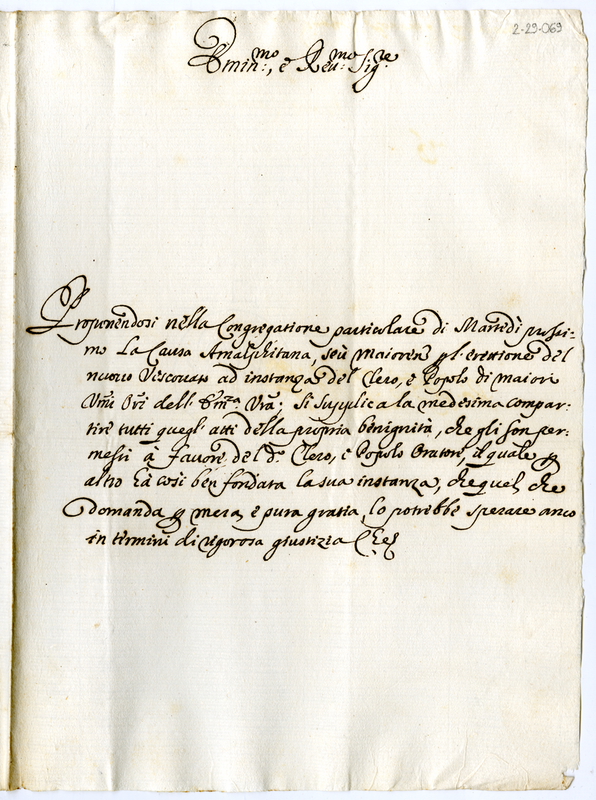 2-29-069
Emin:mo, e Reu:mo Sig.re
Proponendosi nella Congregatione particolare di Martedì prossi-
mo la Causa Amalphitana, seù Maioren pl. erectione del
nuouo Vescouato ad instanza del Clero, e Popolo di maiori
Vmi Ori dell' Em.za Vra; si supplica la medesima compar-
tire tutti quegl' atti della propria benignità, che gli son per-
messi à fauore del d.o Clero, e Popolo Oratore, il quale p
altro hà così ben fondata la sua instanza, che quel, che
domanda p mera, e pura gratia, lo potrebbe sperare anco
in termini di rigorosa giustizia Che